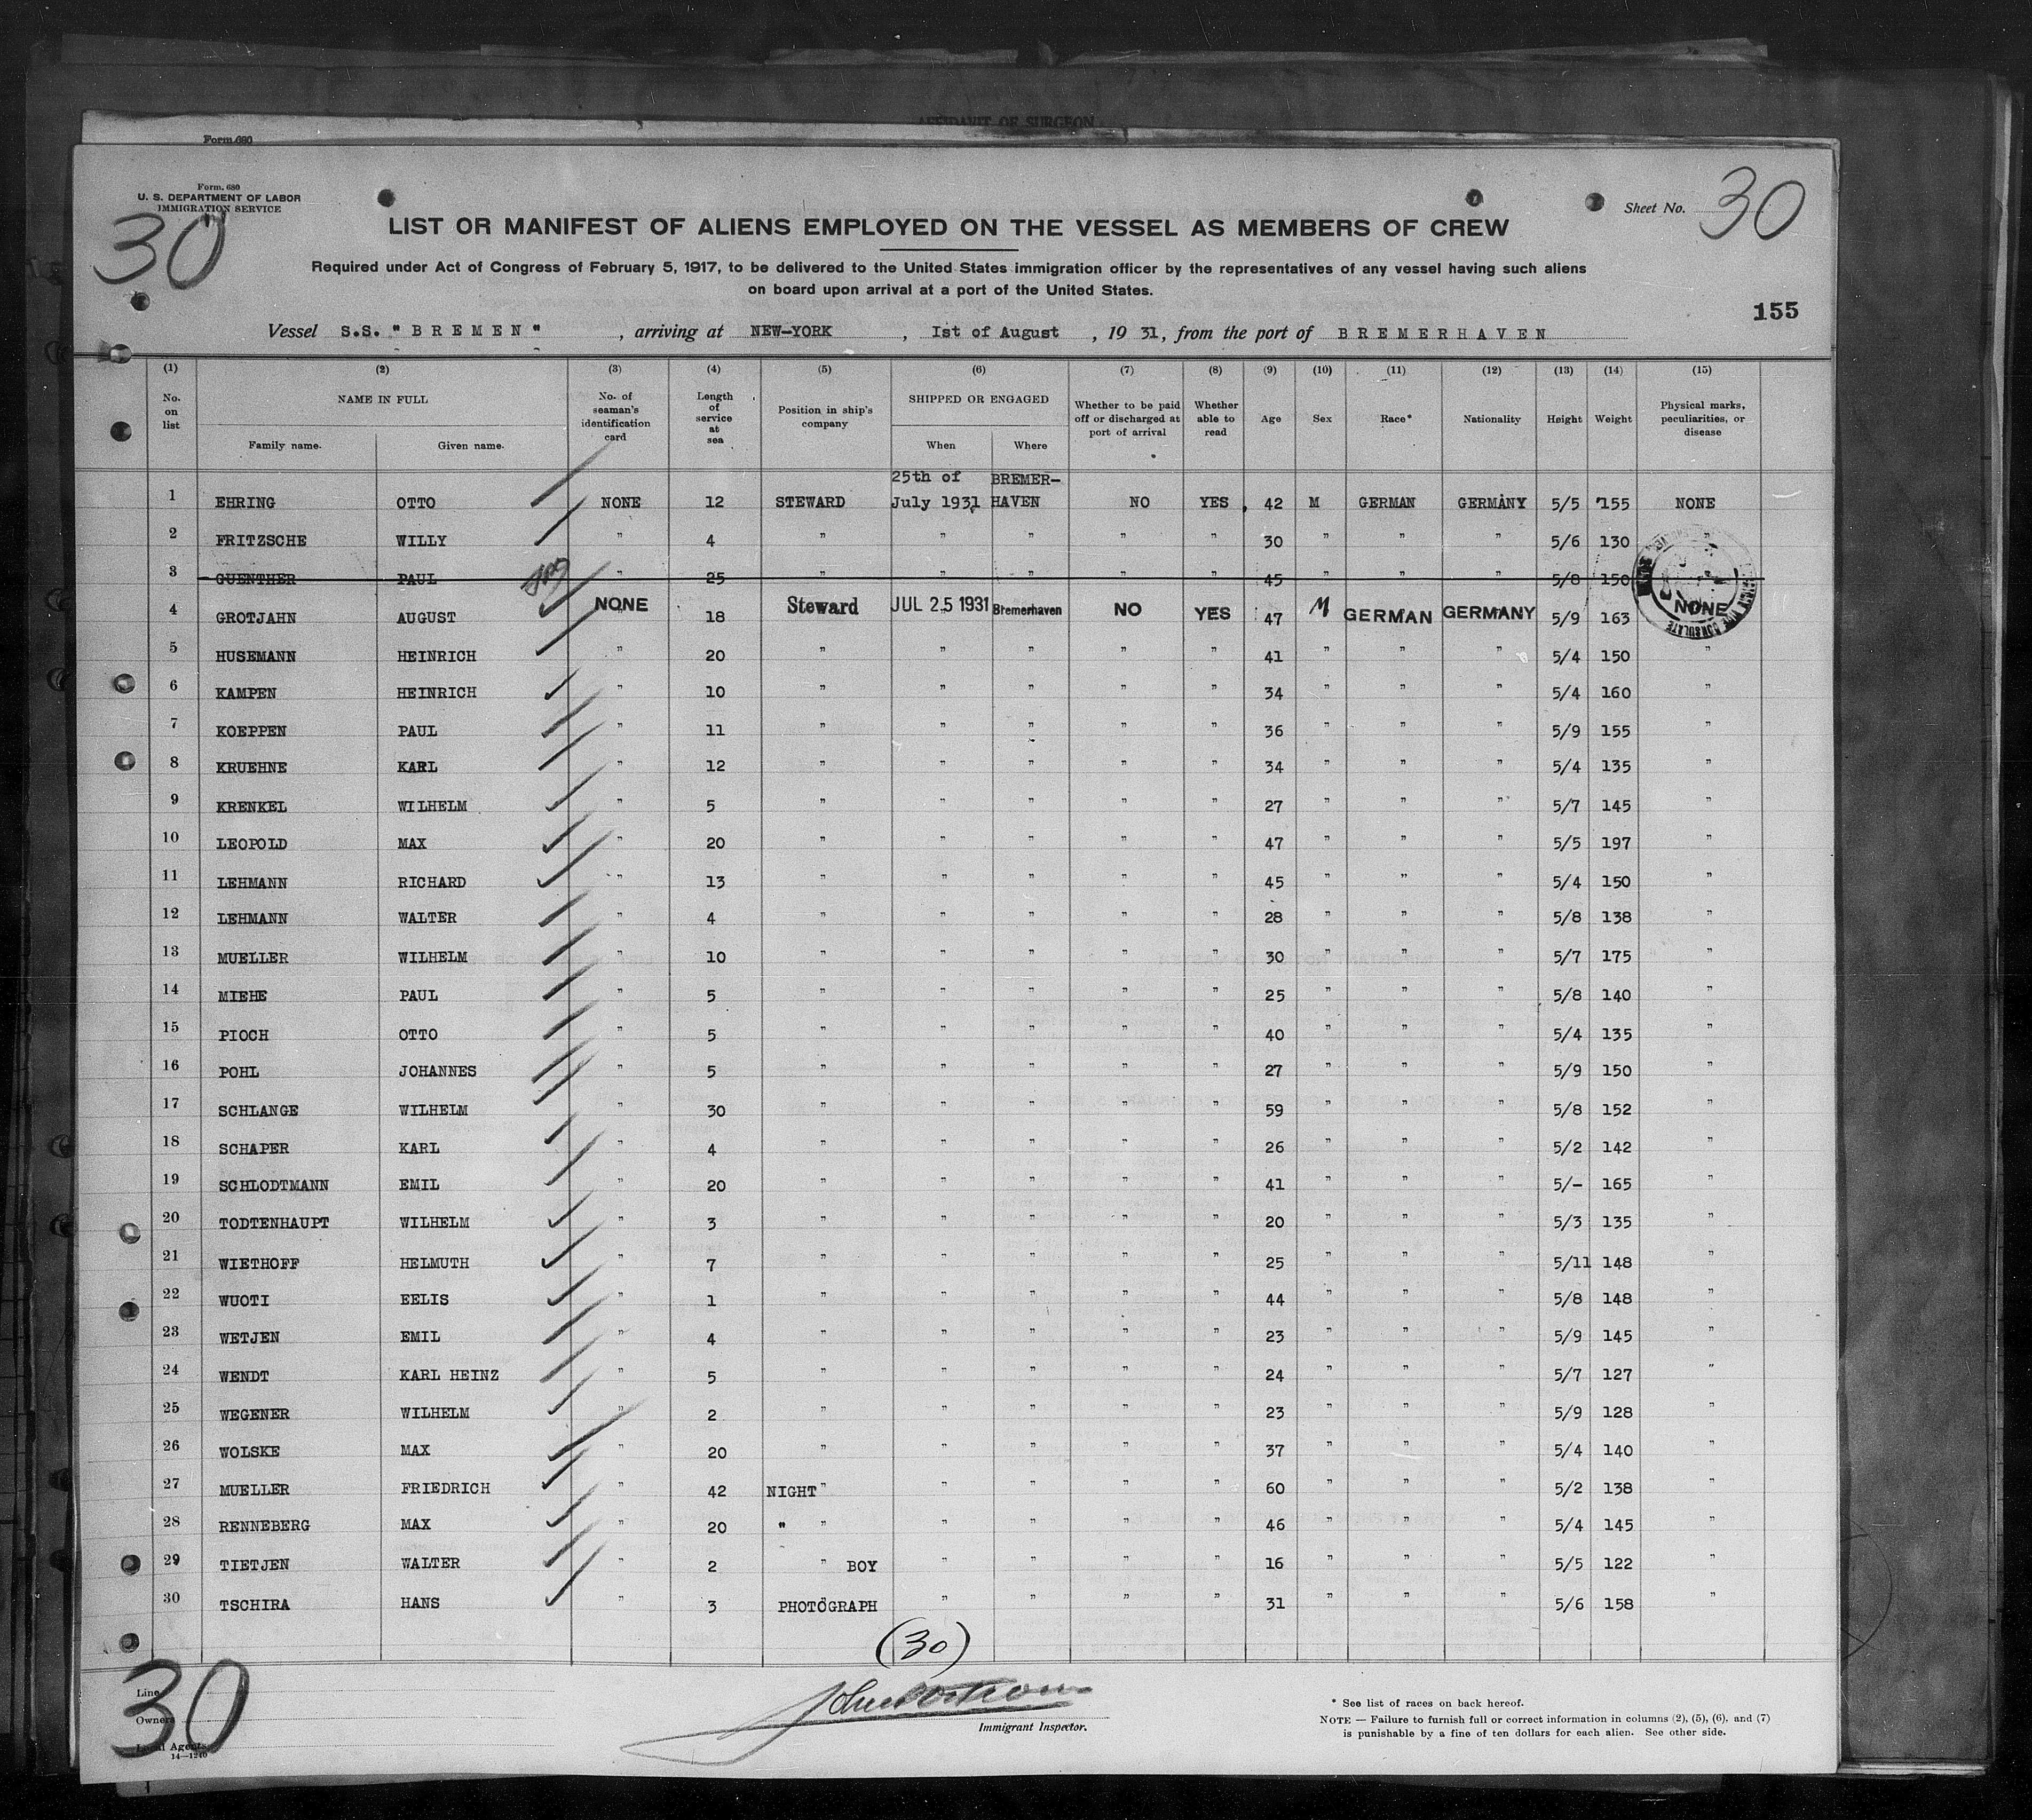 AFFIDAVIT OF SURGEON
Form 680
Form. 680
U. S. DEPARTMENT OF LABOR
IMMIGRATION SERVICE
30
Sheet No. 30
LIST OR MANIFEST OF ALIENS EMPLOYED ON THE VESSEL AS MEMBERS OF CREW
Required under Act of Congress of February 5, 1917, to be delivered to the United States immigration officer by the representatives of any vessel having such aliens
on board upon arrival at a port of the United States.
155
Vessel S.S. "BREMEN", arriving at NEW-YORK, Ist of August, 19 31, from the port of BREMERHAVEN
(1) (2) (3) (4) (5) (6) (7) (8) (9) (10) (11) (12) (13) (14) (15)
No. on list NAME IN FULL Family name. Given name. No. of seaman's identification card Length of service at sea Position in ship's company SHIPPED OR ENGAGED When Where Whether to be paid off or discharged at port of arrival Whether able to read Age Sex Race* Nationality Height Weight Physical marks, peculiarities, or disease
25th of BREMER-
1 EHRING OTTO NONE 12 STEWARD July 1931 HAVEN NO YES 42 M GERMAN GERMANY 5/5 155 NONE
2 FRITZSCHE WILLY " 4 " " " " " 30 " " " 5/6 130 "
3 GUENTHER PAUL " 25 " " " " " 45 " " " 5/8 150
4 GROTJAHN AUGUST NONE 18 Steward JUL 25 1931 Bremerhaven NO YES 47 M GERMAN GERMANY 5/9 163 NONE
5 HUSEMANN HEINRICH " 20 " " " " " 41 " " " 5/4 150 "
6 KAMPEN HEINRICH " 10 " " " " " 34 " " " 5/4 160 "
7 KOEPPEN PAUL " 11 " " " " " 36 " " " 5/9 155 "
8 KRUEHNE KARL " 12 " " " " " 34 " " " 5/4 135 "
9 KRENKEL WILHELM " 5 " " " " " 27 " " " 5/7 145 "
10 LEOPOLD MAX " 20 " " " " " 47 " " " 5/5 197 "
11 LEHMANN RICHARD " 13 " " " " " 45 " " " 5/4 150 "
12 LEHMANN WALTER " 4 " " " " " 28 " " " 5/8 138 "
13 MUELLER WILHELM " 10 " " " " " 30 " " " 5/7 175 "
14 MIEHE PAUL " 5 " " " " " 25 " " " 5/8 140 "
15 PIOCH OTTO " 5 " " " " " 40 " " " 5/4 135 "
16 POHL JOHANNES " 5 " " " " " 27 " " " 5/9 150 "
17 SCHLANGE WILHELM " 30 " " " " " 59 " " " 5/8 152 "
18 SCHAPER KARL " 4 " " " " " 26 " " " 5/2 142 "
19 SCHLODTMANN EMIL " 20 " " " " " 41 " " " 5/- 165 "
20 TODTENHAUPT WILHELM " 3 " " " " " 20 " " " 5/3 135 "
21 WIETHOFF HELMUTH " 7 " " " " " 25 " " " 5/11 148 "
22 WUOTI EELIS " 1 " " " " " 44 " " " 5/8 148 "
23 WETJEN EMIL " 4 " " " " " 23 " " " 5/9 145 "
24 WENDT KARL HEINZ " 5 " " " " " 24 " " " 5/7 127 "
25 WEGENER WILHELM " 2 " " " " " 23 " " " 5/9 128 "
26 WOLSKE MAX " 20 " " " " " 37 " " " 5/4 140 "
27 MUELLER FRIEDRICH " 42 NIGHT " " " " " 60 " " " 5/2 138 "
28 RENNEBERG MAX " 20 " " " " " " 46 " " " 5/4 145 "
29 TIETJEN WALTER " 2 " BOY " " " " 16 " " " 5/5 122 "
30 TSCHIRA HANS " 3 PHOTOGRAPH " " " " 31 " " " 5/6 158 "
(30)
30
Line
Owners
Local Agents
14—1240
Immigrant Inspector.
* See list of races on back hereof.
NOTE — Failure to furnish full or correct information in columns (2), (5), (6), and (7)
is punishable by a fine of ten dollars for each alien. See other side.